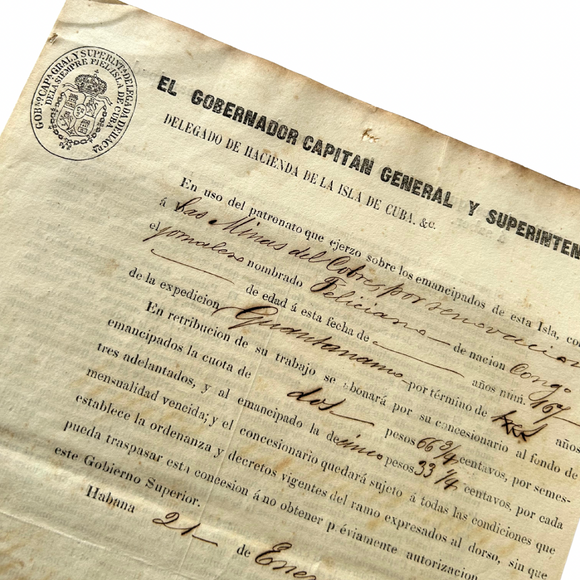 GOBNO CAPN GRAL Y SUPERINTE DELEGADA DE HACDA
DE LA SIEMPRE FIEL ISLA DE CUBA
EL GOBERNADOR CAPITAN GENERAL Y SUPERINTEN
DELEGADO DE HACIENDA DE LA ISLA DE CUBA. &c.
En uso del patronato que ejerzo sobre los emancipados de esta Isla, con
á Las Minas del Cobre por renovacion
el jornalero nombrado Feliciano de nacion Congo
de edad á esta fecha de años núm. 167
de la expedicion Guantanamo por término de tres años
En retribucion de su trabajo se abonará por su concesionario al fondo de
emancipados la cuota de dos pesos 66 3/4 centavos, por semes-
tres adelantados, y al emancipado la de cinco pesos 33 1/4 centavos, por cada
mensualidad vencida; y el concesionario quedará sujeto á todas las condiciones que
establece la ordenanza y decretos vigentes del ramo expresados al dorso, sin que
pueda traspasar esta concesion á no obtener préviamente autorizacion
este Gobierno Superior.
Habana 21 de Ener